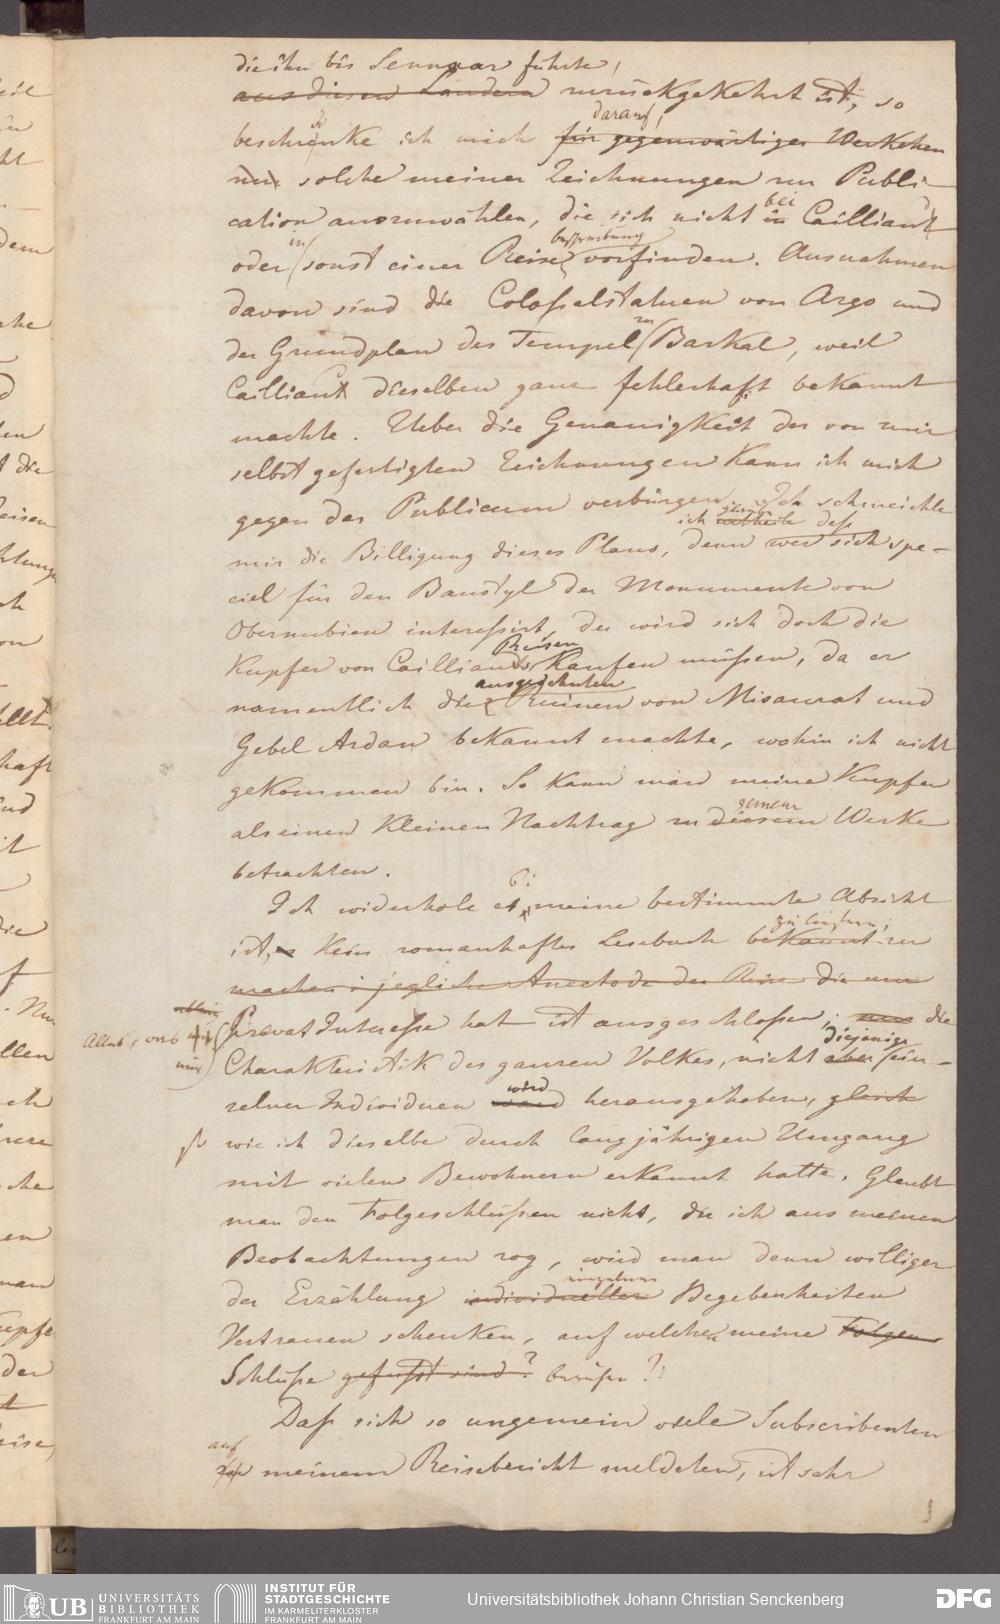 die ihn bis Sennaar führte,
aus diesen Ländern zurückgekehrt ist, so
darauf,
beschränke ich mich für gegenwärtiges Werkchen
nur solche meiner Zeichnungen zur Publi-
bei
cation auszuwählen, die sich nicht in Cailliaud
in beschreibung
oder sonst einer Reise vorfinden. Ausnahmen
davon sind die Coloßalstatuen von Argo und
zu
der Grundplan des Tempel Barkal, weil
Cailliaud dieselben ganz fehlerhaft bekannt
machte. Ueber die Genauigkeit der von mir
selbst gefertigten Zeichnungen kann ich mich
gegen das Publicum verbürgen. Ich schmeichle
ich glaube daß
mir die Billigung dieses Plans, denn wer sich spe-
ciel für den Baustyl der Monumente von
Obernubien interessirt, der wird sich doch die
Reisen
Kupfer von Cailliauds kaufen müßen, da er
ausgedehnten
namentlich die Ruinen von Misaurat und
Gebel Ardan bekannt machte, wohin ich nicht
gekommen bin. So kann man meine Kupfer
jenem
als einen kleinen Nachtrag zu diesem Werke
betrachten.
Ich widerhole es, meine bestimmte Absicht
zu liefern;
ist, kein romanhaftes Lesebuch bekannt zu
machen; jegliche Anectode der Reise die nur
Allés, was
nur
Privat Interesse hat ist ausgeschloßen; nur die
diejenige
Charakteristik des ganzen Volkes, nicht aber ein-
wird
zelner Individuen ward herausgehoben, gleich
so wie ich dieselbe durch langjährigen Umgang
mit vielen Bewohnern erkannt hatte. Glaubt
man den Folgeschlüßen nicht, die ich aus meinen
Beobachtungen zog, wird man denn williger
einzelner
der Erzählung individueller Begebenheiten
Vertrauen schenken, auf welche meine Folgen
Schlüße gefußt sind? beruhen?
Daß sich so ungemein viele Subscribenten
auf
zu meinem Reisebericht meldeten, ist sehr
UB UNIVERSITÄTS
BIBLIOTHEK
FRANKFURT AM MAIN
INSTITUT FÜR
STADTGESCHICHTE
IM KARMELITERKLOSTER
FRANKFURT AM MAIN
Universitätsbibliothek Johann Christian Senckenberg
DFG